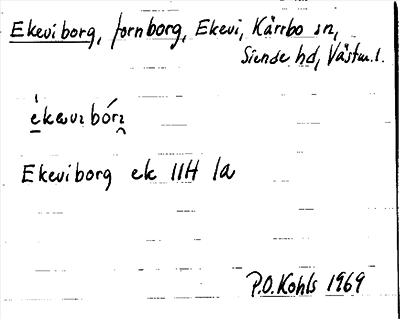 Ekeviborg, fornborg, Ekevi, Kärrbo sn,
Siende hd, Västm.l.
Ekeviborg ek 11H 1a
P.O. Kohls 1969